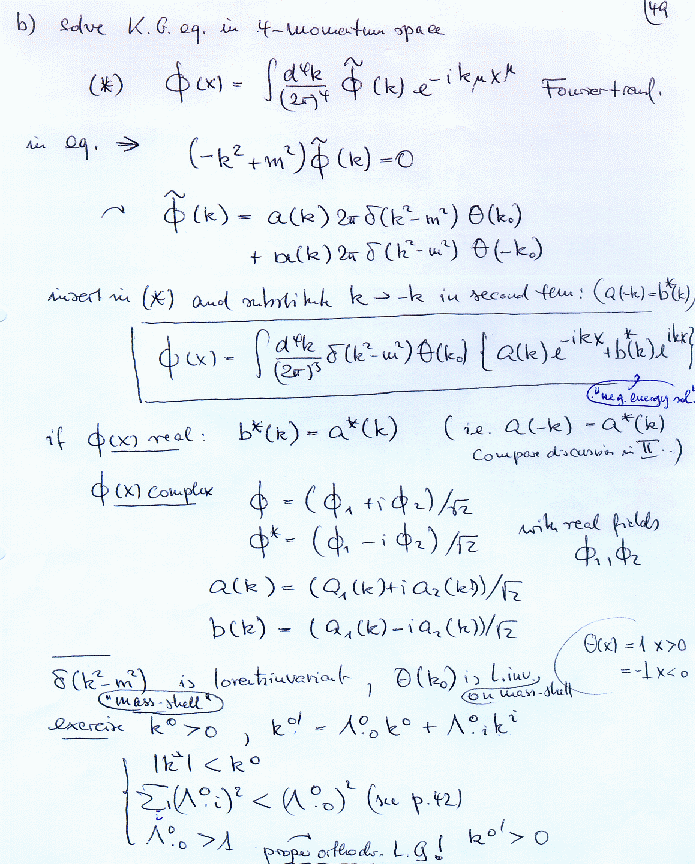 49
b) solve K.G. eq. in 4-momentum space
(*) ϕ(x) = ∫ d⁴k/(2π)⁴ ϕ̃(k) e^{-ik_μ x^μ} Fouriertransf.
in eq. ⇒ (-k² + m²) ϕ̃(k) = 0
↝ ϕ̃(k) = a(k) 2π δ(k²-m²) Θ(k₀)
+ a(k) 2π δ(k²-m²) Θ(-k₀)
insert in (*) and substitute k → -k in second term: (a(-k) = b*(k)
ϕ(x) = ∫ d⁴k/(2π)³ δ(k²-m²) Θ(k₀) { a(k) e^{-ikx} + b*(k) e^{ikx} }
"neg. energy sol"
if ϕ(x) real: b*(k) = a*(k) (i.e. a(-k) = a*(k)
compare discussion in II...)
ϕ(x) complex ϕ = (ϕ₁ + iϕ₂)/√2
ϕ* = (ϕ₁ - iϕ₂)/√2 with real fields
ϕ₁, ϕ₂
a(k) = (a₁(k) + i a₂(k))/√2
b(k) = (a₁(k) - i a₂(k))/√2
Θ(x) = 1 x>0
= -1 x<0
δ(k²-m²) is lorentzinvariant, Θ(k₀) is L.inv.
"mass-shell" on mass-shell
exercise k⁰ > 0, k⁰' = Λ⁰₀ k⁰ + Λ⁰ᵢ kⁱ
|k⃗| < k⁰
∑ᵢ (Λ⁰ᵢ)² < (Λ⁰₀)² (see p. 42)
Λ⁰₀ > 1 proper orthochr. L.G! k⁰' > 0